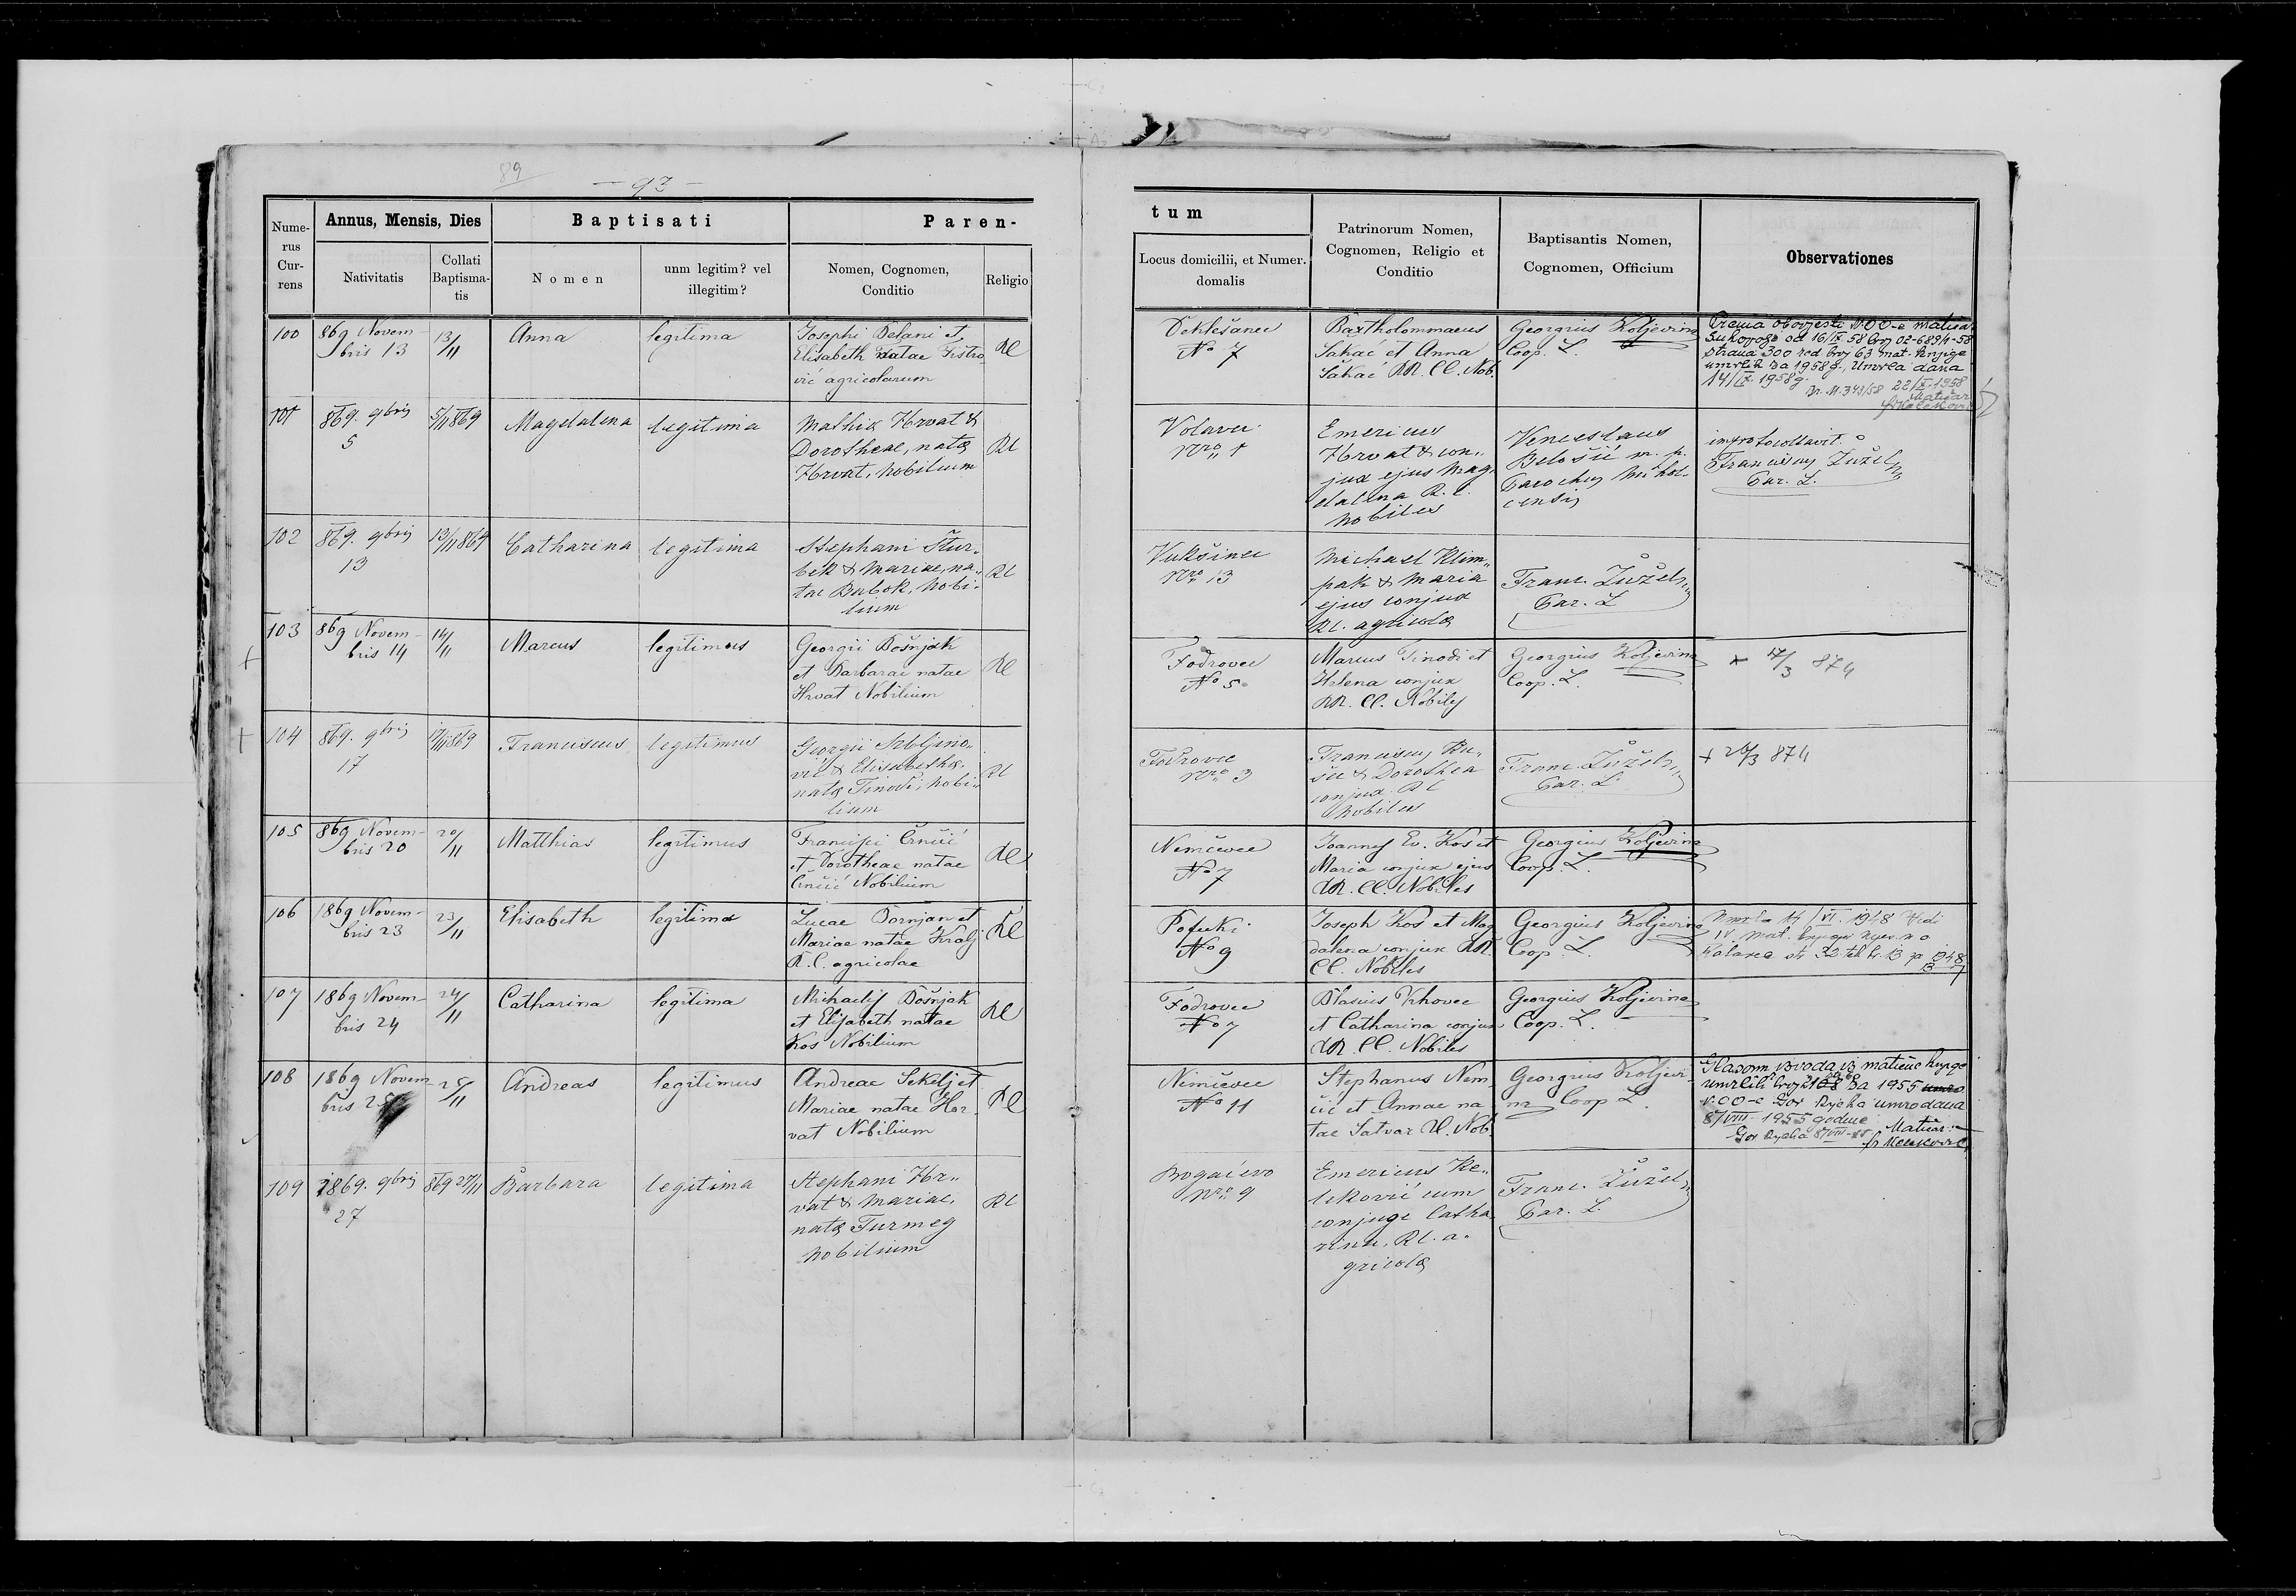 89
— 93 —
Nume-
rus
Cur-
rens
Annus, Mensis, Dies
Nativitatis
Collati
Baptisma-
tis
Baptisati
Nomen
unm legitim? vel
illegitim?
Paren-
Nomen, Cognomen,
Conditio
Religio
tum
Locus domicilii, et Numer.
domalis
Patrinorum Nomen,
Cognomen, Religio et
Conditio
Baptisantis Nomen,
Cognomen, Officium
Observationes
100
869 Novem-
bris 13
13/11
Anna
legitima
Josephi Belani et
Elisabeth natae Fistro
vić agricolarum
RC
Deklešanec
No 7
Bartholommaeus
Sakač et Anna
Sakač RR. CC. Nob.
Georgius Koljevina
Coop. L.
od 16/IX 58 broj 02-6894-58
strana 300 red. broj 63 mat. knjige
umrlih za 1958 g., Umrla dana
14/IX. 1958 g.
Br. M. 343/58 22/X. 1958
Matičar
101
869. 9bris
5
5/11 869
Magdalena
legitima
Mathiæ Hrvat &
Dorotheae, natæ
Hrvat, nobilium
RC
Volavec
Nro 1
Emericus
Hrvat & con-
jux ejus Mag-
dalena R. C.
nobiles
Venceslaus
Belošić m. p.
Parochus
improtocollavit
Franciscus Žužel
Par. L.
102
869. 9bris
13
13/11 869
Catharina
legitima
Stephani
& Mariae, na-
tae Bubok, nobi-
lium
RC
Vukšinec
Nro 13
Michael Klim-
pak & Maria
ejus conjux
RC. agricolæ
Franc. Žužel
Par. L
103
869 Novem-
bris 14
14/11
Marcus
legitimus
Georgii Bošnjak
et Barbarae natae
Hrvat Nobilium
RC
Fodrovec
No 5
Marcus Tinodi et
Helena conjux
RR. CC. Nobiles
Georgius Koljevina
Coop. L.
+ 17/3 874
104
869. 9bris
17
17/11 869
Franciscus
legitimus
Georgii Srbljino-
vić & Elisabethæ
natæ Tinodi, nobi-
lium
RC
Fodrovec
Nro 3
Franciscus
& Dorothea
conjux RC
nobiles
Franc. Žužel
Par. L
+ 26/3 874
105
869 Novem-
bris 20
20/11
Matthias
legitimus
Francisci Črnčić
et Dorotheae natae
Črnčić Nobilium
RC
Nemčevec
No 7
Joannes Ev. Kos et
Maria conjux ejus
RR. CC. Nobiles
Georgius Koljevina
Coop. L.
106
1869 Novem-
bris 23
23/11
Elisabeth
legitima
Lucae Dornjan et
Mariae natae Kralj
R. C. agricolae
RC
Pofuki
No 9
Joseph Kos et Mag
dalena conjux RR.
CC. Nobiles
Georgius Koljevina
Coop. L.
Umrla 14/VI. 1948 Vidi
IV mat. knjigu
Kalinea str 32 tek br. 13 za 1948
107
1869 Novem-
bris 24
24/11
Catharina
legitima
Michaelis Bošnjak
et Elisabeth natae
Kos Nobilium
RC
Fodrovec
No 7
Blasius Vrhovec
et Catharina conjux
RR. CC. Nobiles
Georgius Koljevina
Coop. L.
108
1869 Novem
bris 25
25/11
Andreas
legitimus
Andreae Sekelj et
Mariae natae Hor
vat Nobilium
RC
Nimčevec
No 11
Stephanus Nem
čić et Annae na
tae Satvar RC. Nob.
Georgius Koljevi-
na Coop L.
Glasom izvoda iz matične knjige
umrlih broj za 1955
NOO-e Gor Rijeka umro dana
8/VIII. 1955 godine
Gor Rijeka 8/VIII-55
Matičar:
109
1869. 9bris
27
869 27/11
Barbara
legitima
Stephani Hr-
vat & Mariae,
natæ Turmeg
nobilium
RC
Bogačevo
Nro 9
Emericus Ke-
leković cum
conjuge Catha-
rina, RC. a-
gricolæ
Franc. Žužel
Par. L.